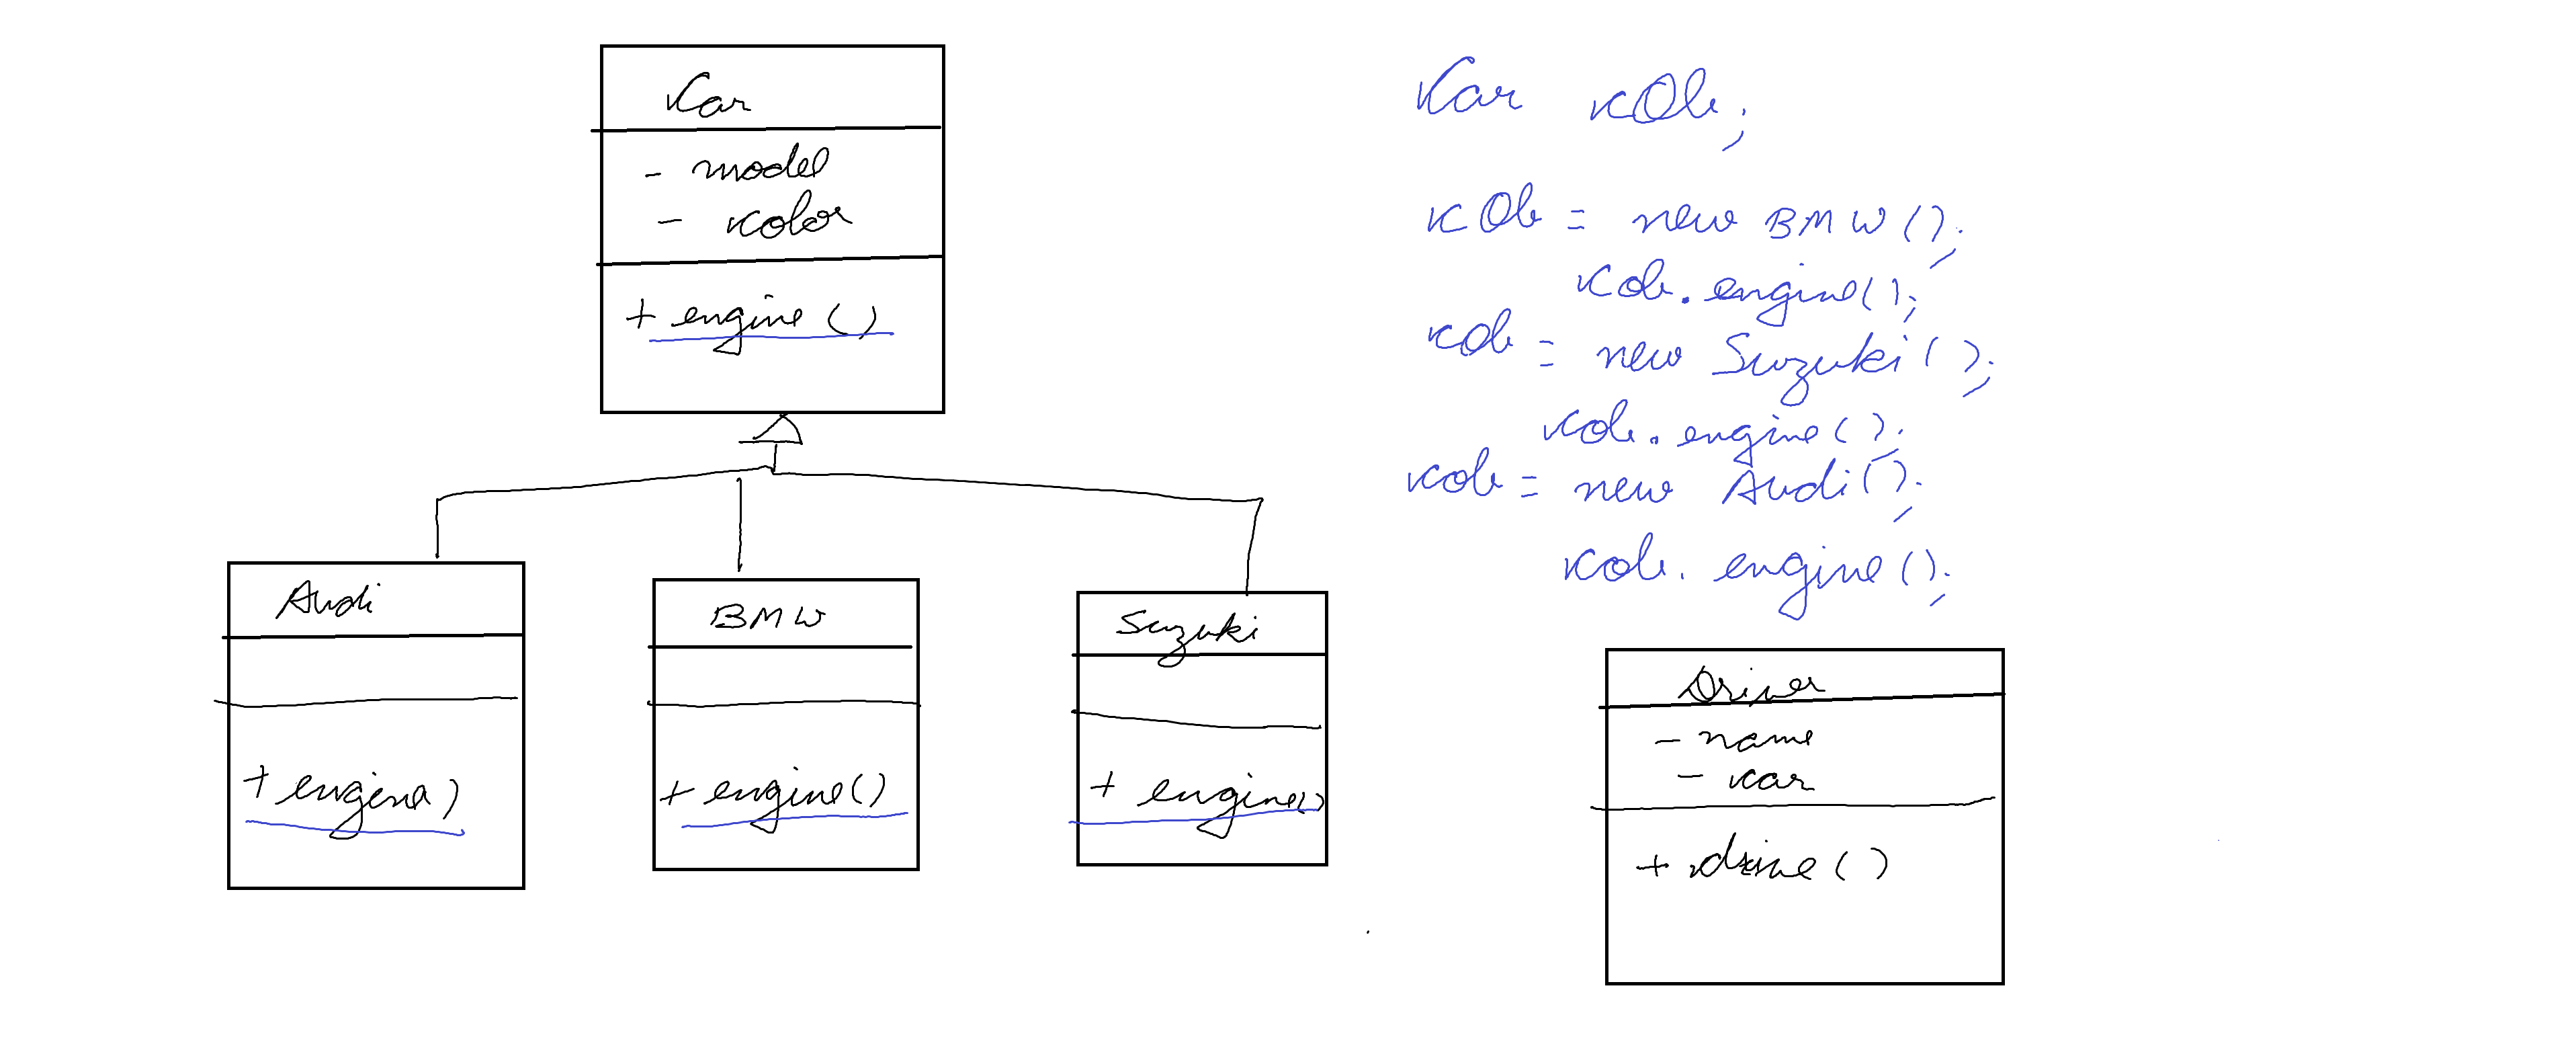 Car
- model
- color
+ engine ()
Audi
+ engine)
BMW
+ engine()
Suzuki
+ engine()
Car cOb;
cOb = new BMW ();
cob. engine();
cob = new Suzuki ();
cob. engine ();
cob = new Audi();
cob. engine ();
Driver
- name
- car
+ drive ()